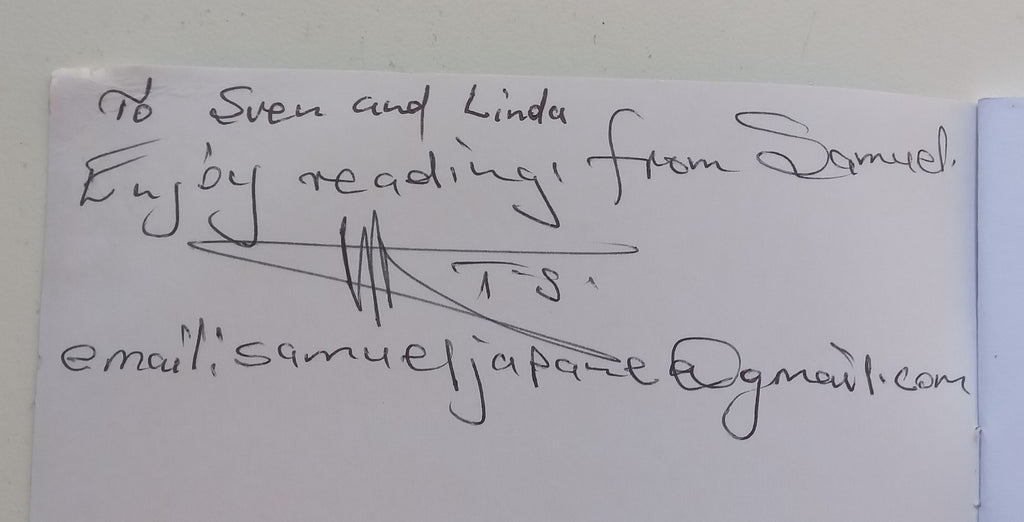 To Sven and Linda
Enjoy reading, from Samuel.
T-S.
email: samueljapane@gmail.com